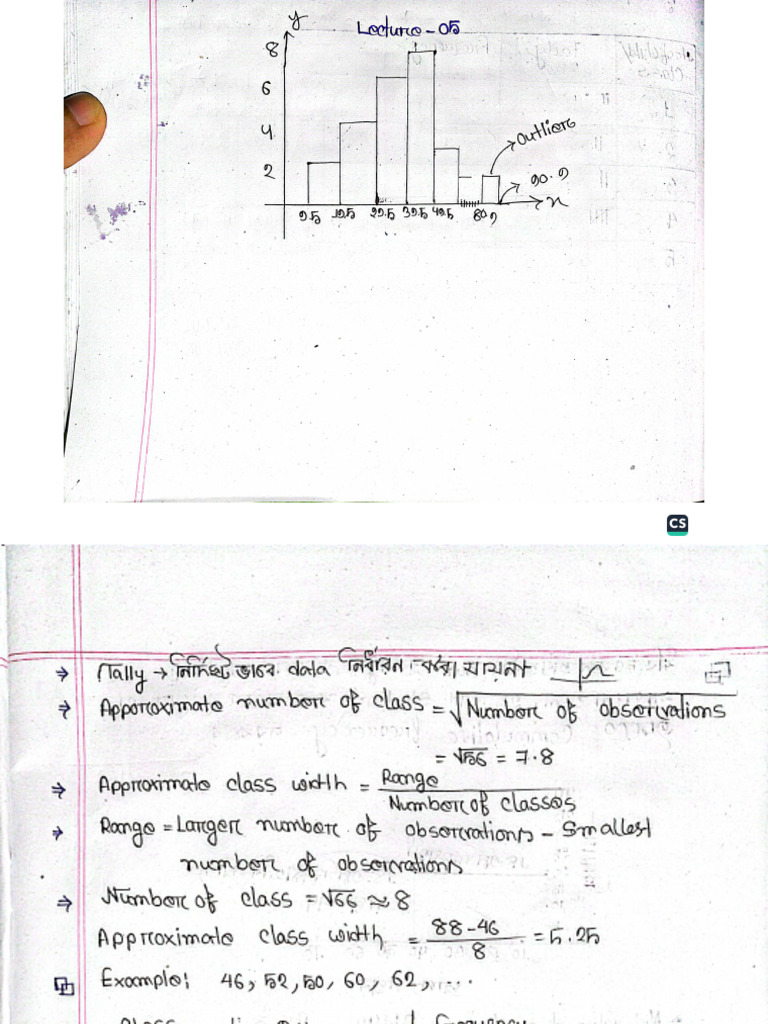 Lecture - 05
y
8
6
4
2
Outliers
90.9
9.5 19.5 29.5 39.5 49.5 80.9 x
CS
⇒ Tally → নির্দিষ্ট ভাবে data নির্ধারন করা যায়না
⇒ Approximate number of class = √Number of observations
= √56 = 7.8
⇒ Approximate class width = Range
Number of classes
⇒ Range = Larger number of observations - Smallest
number of observations
⇒ Number of class = √66 ≈ 8
Approximate class width = 88-46 / 8 = 5.25
Example: 46, 52, 50, 60, 62, ...
Frequency